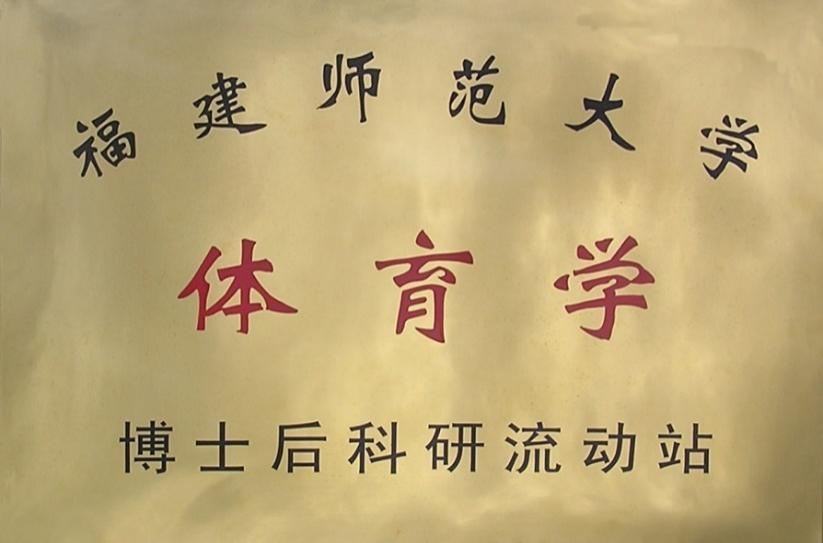 福建师范大学
体育学
博士后科研流动站